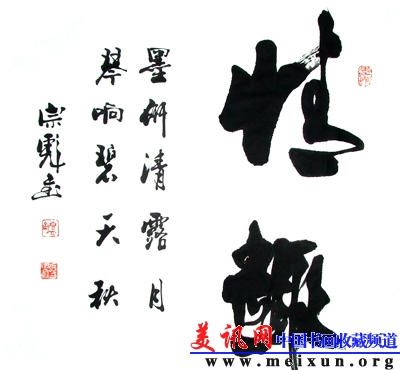 情趣
墨研清露月
琴响碧天秋
美讯网 中国书画收藏频道
www.meixun.org